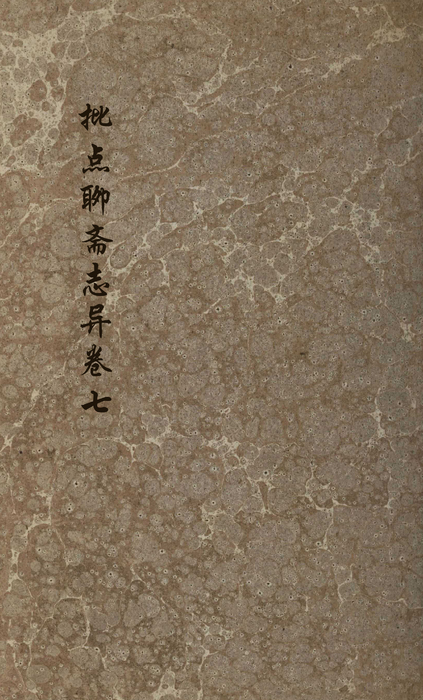 批点聊斋志异卷七